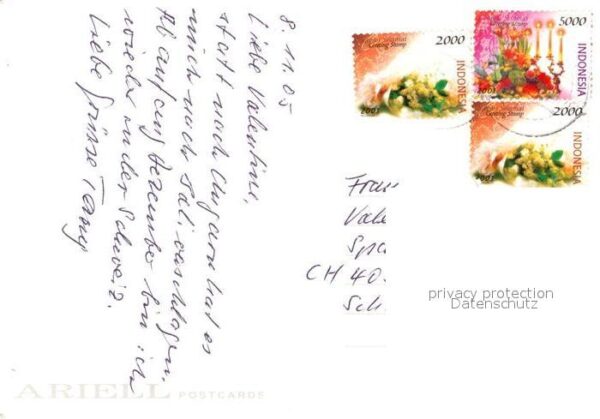 8.11.05
Liebe Valentine,
statt nach Ungarn hat es
mich nach Bali verschlagen.
Ab anfang Dezember bin ich
wieder in der Schweiz.
Liebe Grüsse
2000
INDONESIA
2003
Greeting Stamp
5000
INDONESIA
2003
Greeting Stamp
2000
INDONESIA
2003
Greeting Stamp
Frau
Vale
Spa
CH 40
Sch
privacy protection
Datenschutz
ARIELL POSTCARDS